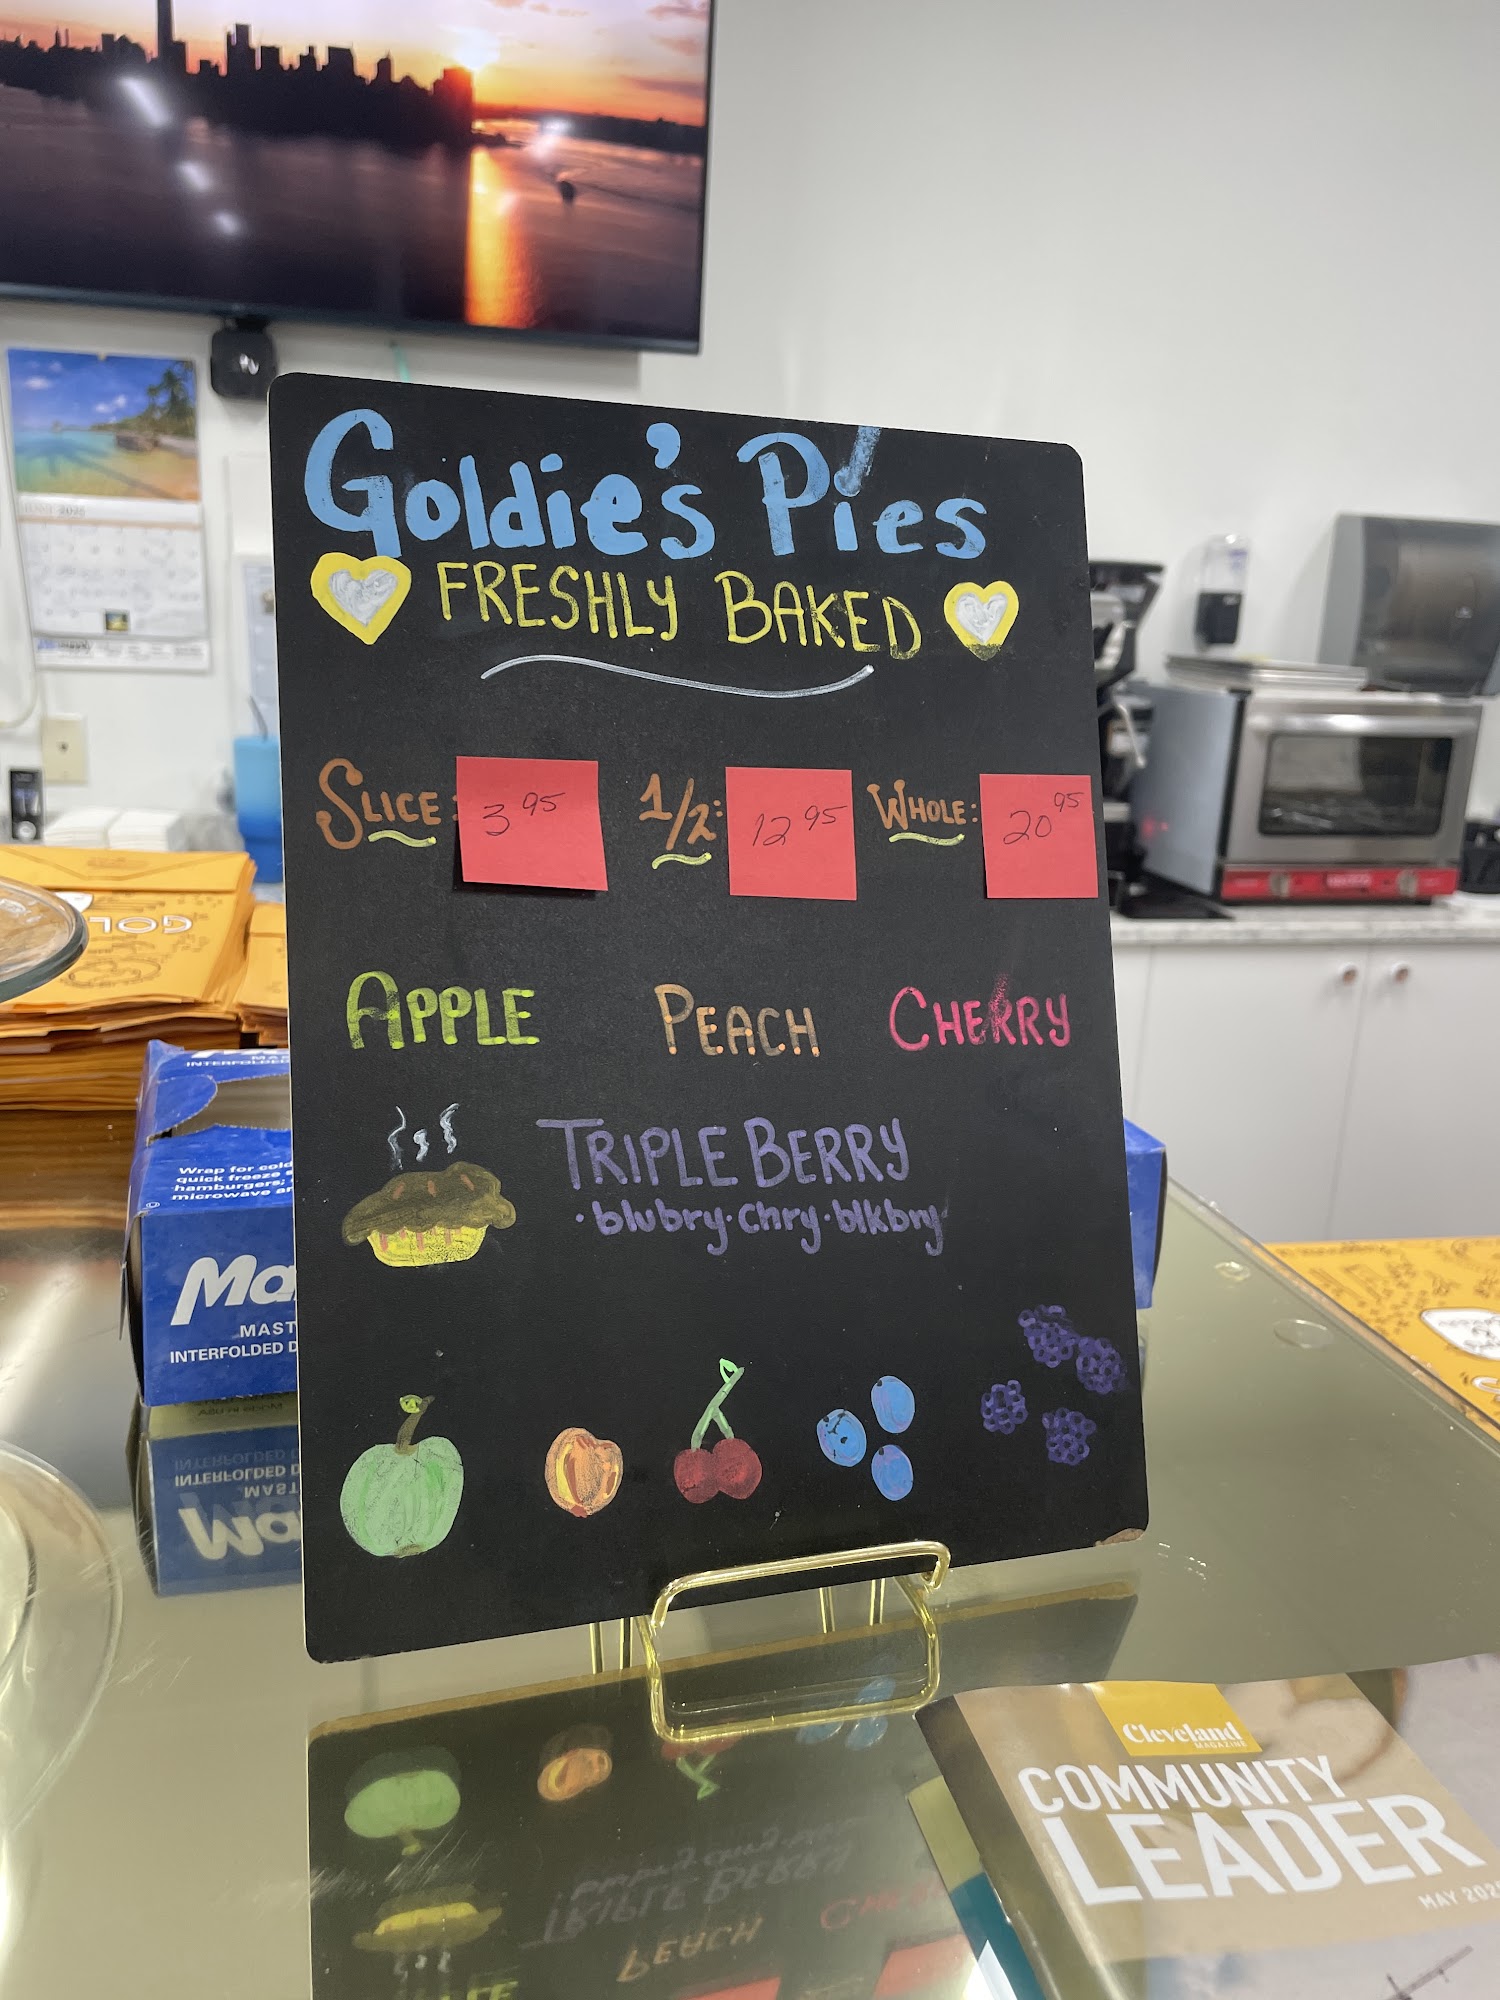 Goldie's Pies
FRESHLY BAKED
SLICE: 3 95 1/2: 12 95 WHOLE: 20 95
APPLE PEACH CHERRY
TRIPLE BERRY
· blubry · chry · blkbry
2025
GOL
INTERFOLDED
Wrap for cold
quick freeze
hamburgers;
microwave
Ma
MAST
INTERFOLDED D
Cleveland
MAGAZINE
COMMUNITY
LEADER
MAY 202